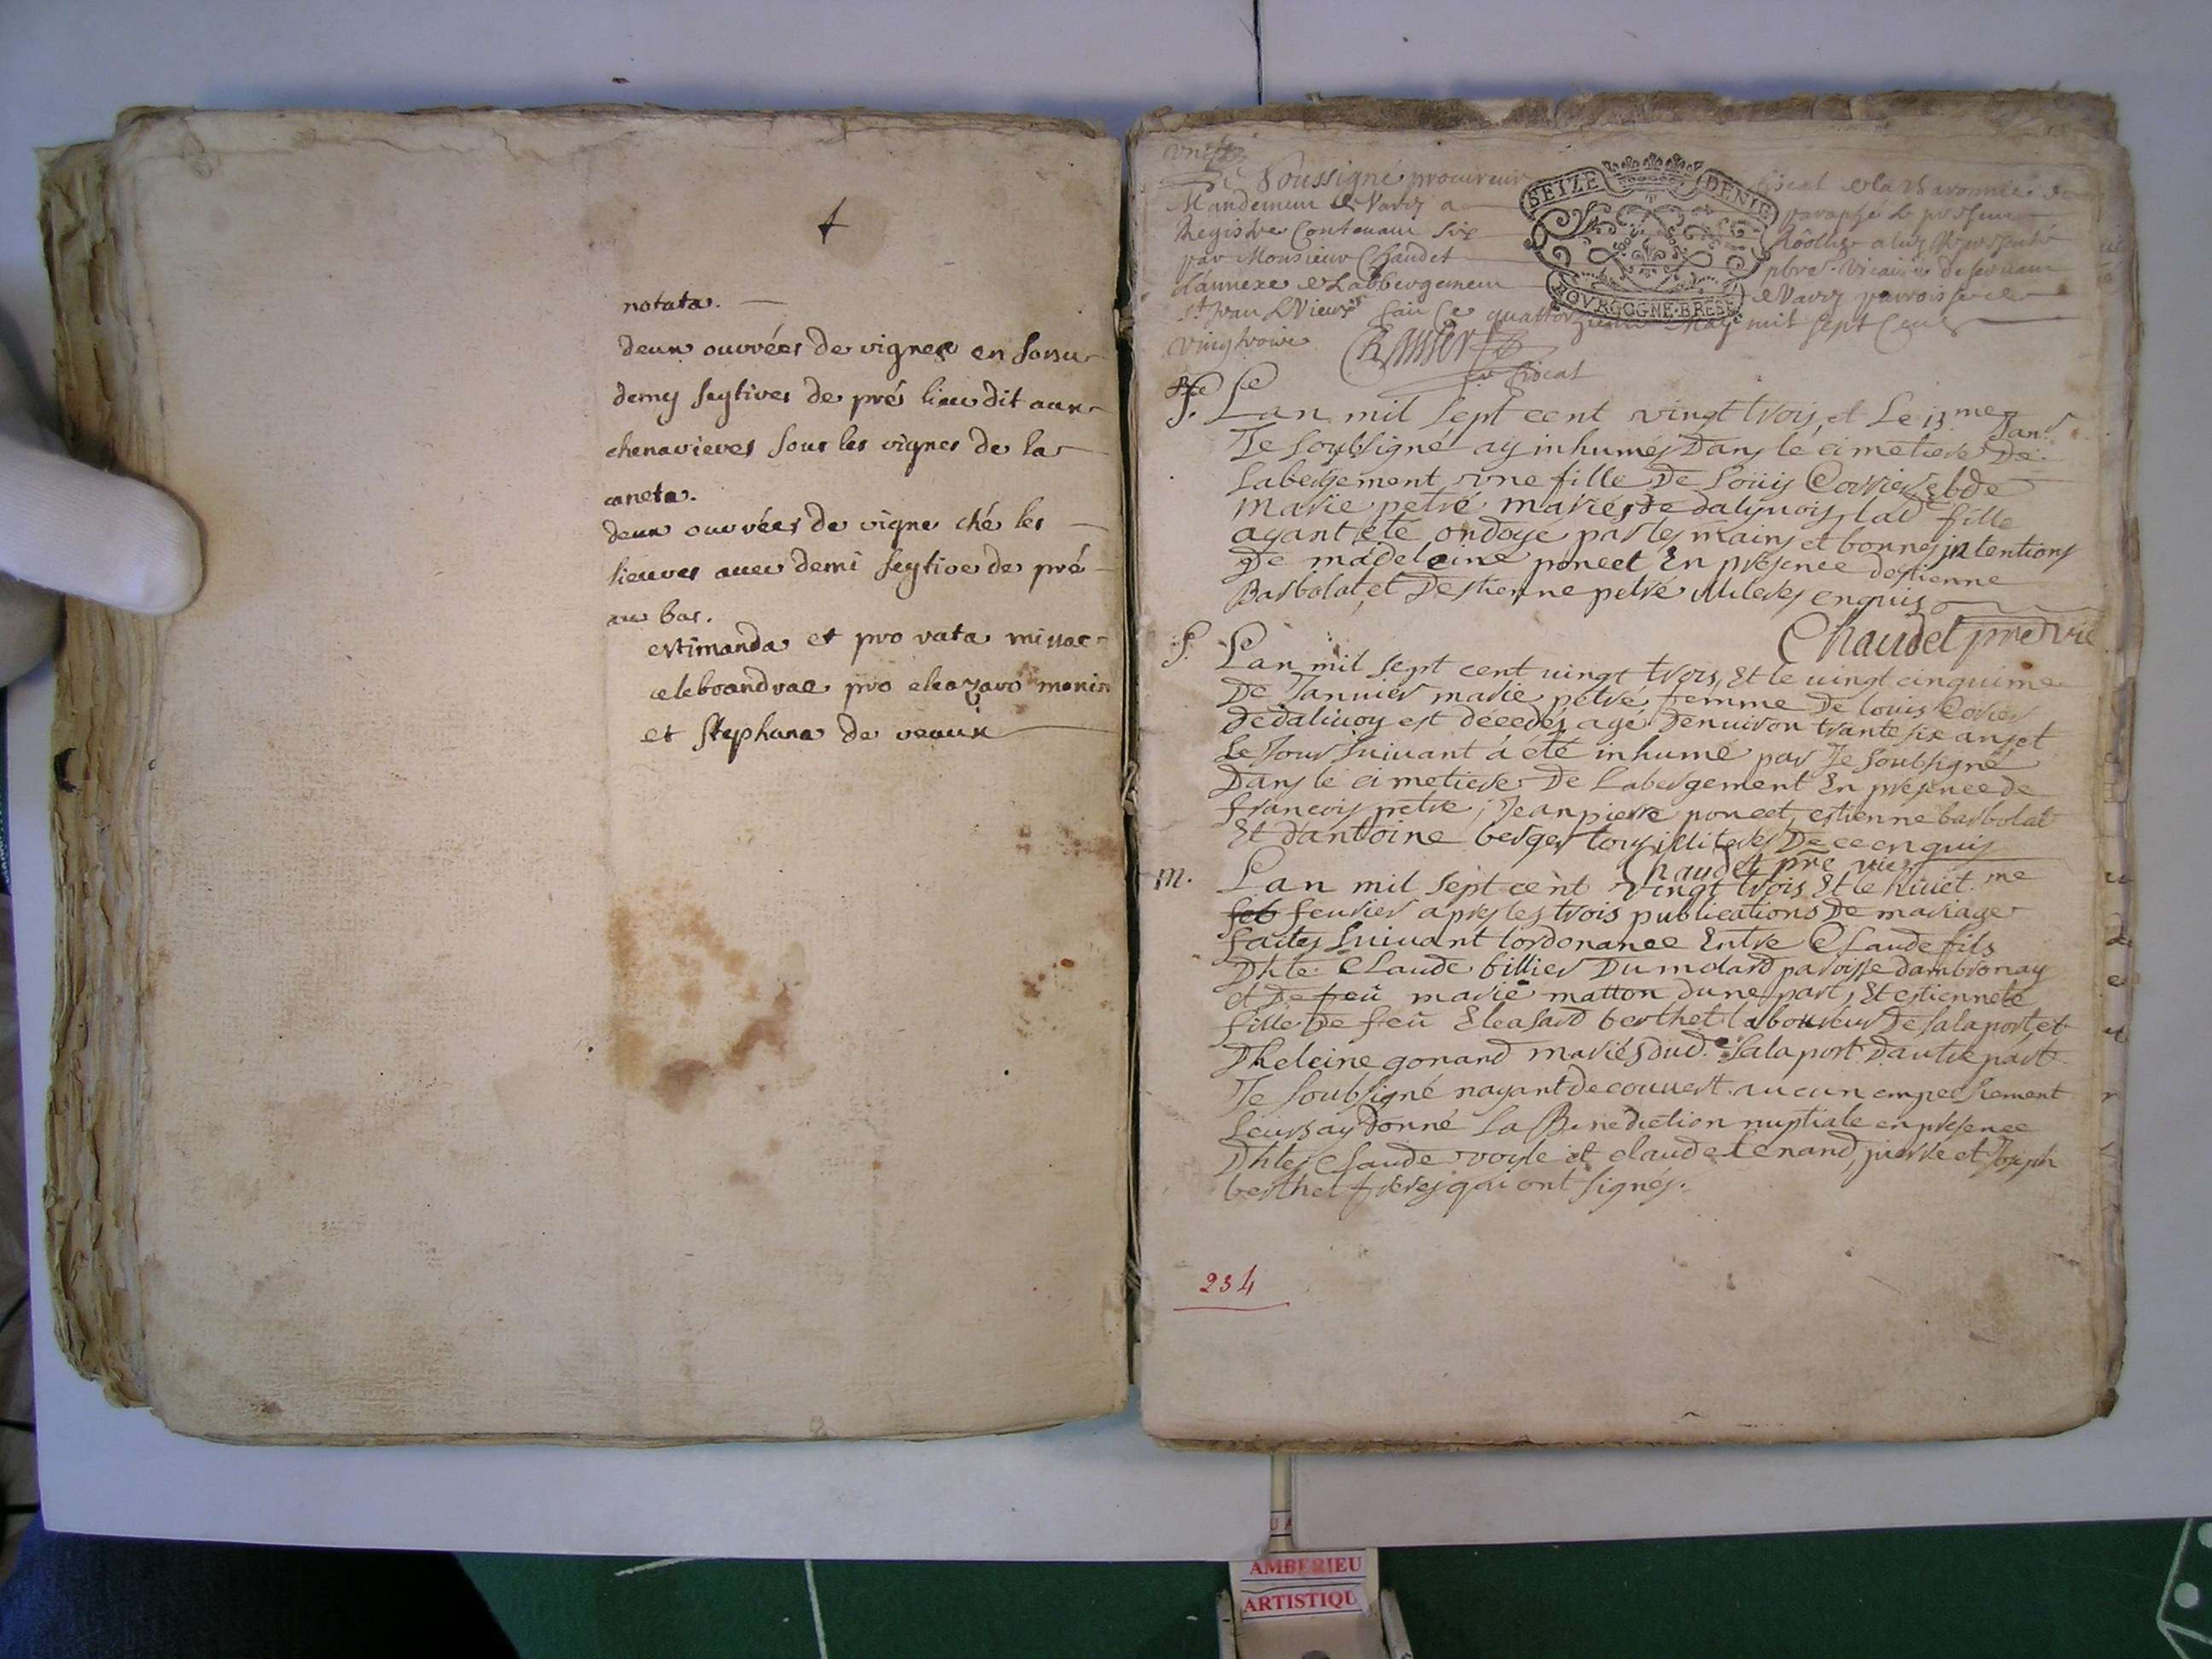 notata.
deux ouvrées de vignes en
demy seytives de pré lieu dit aux
chenavieres sous les vignes de la
caneta.
deux ouvrées de vigne ché les
lieuves avec demi seytive de pré
au bas.
estimanda et pro rata missae
celebrandrae pro eleazaro monin
et stephana de veaux
Soussigné procureur fiscal de la Baronnie
Mandement de Varey a paraphé le present
Registre Contenant six
par Monsieur Chaudet pbre Vicaire deservant
Lannexe de Labbergement de Varey parroisse de
St Jean le Vieux fait Ce quattorzieme May mil sept Cent
vingtroix
SEIZE DENIE
BOURGOGNE·BRESSE
S. Lan mil sept cent vingt trois, et Le 13.me Janr
Je soubsigné ay inhumés Dans le cimetiere De
Labergement une fille De Loüis Corrier et de
marie petré mariés de dalivois lad fille
ayant été ondoyé par les mains et bonnes intentions
De madeleine poncet En presence destienne
Barbolat, et Destienne petré illiteres enquis
Chaudet pre vic
S. Lan mil sept cent uingt trois, Et le uingt cinquime
De Januier marie petré femme De louis Corier
de dalivoy est decedés agé denuiron trante six ans et
Le Jour suiuant á été inhumé par Je soubsigné
Dans le cimetiere De Labergement En presence de
francois petre, Jean pierre poncet, estienne barbolat
Et dantoine berger tous illiteres De ce enquis
Chaudet pre vic
m. Lan mil sept cent vingt trois Et le huiet.me
feb feurier apres les trois publications De mariage
faites suiuant lordonance Entre Claude fils
Dhte Claude billier Du molard paroisse dambronay
et De feü marie matton dune part, Et estiennete
fille De feü Eleasard berthet laboureur De salaport, et
Dheleine gonard mariés dud. salaport Dautre part
Je soubsigné nayant decouuert aucun empechement
Leurs ay donné La Benediction nuptiale en presence
Dhtes Claude voyle et claude tenand, pierre et Joseph
berthet freres qui ont signés.
234
AMBERIEU
ARTISTIQU